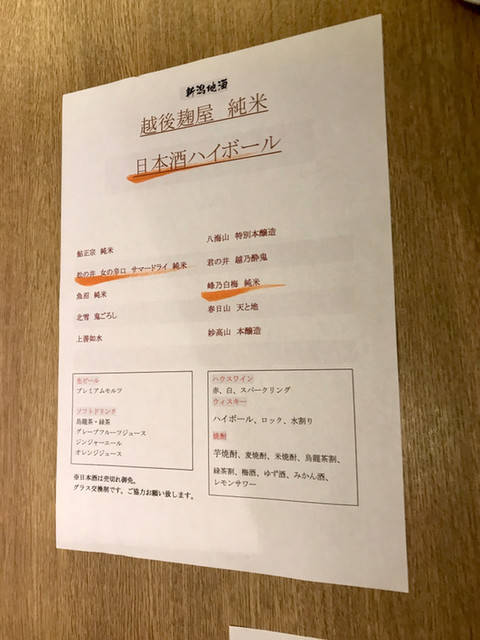 新潟地酒
越後麹屋 純米
日本酒ハイボール
鮎正宗 純米
松の井 女の辛口 サマードライ 純米
魚沼 純米
北雪 鬼ごろし
上善如水
八海山 特別本醸造
君の井 越乃酔鬼
峰乃白梅 純米
春日山 天と地
妙高山 本醸造
生ビール
プレミアムモルツ
ソフトドリンク
烏龍茶・緑茶
グレープフルーツジュース
ジンジャーエール
オレンジジュース
ハウスワイン
赤、白、スパークリング
ウィスキー
ハイボール、ロック、水割り
焼酎
芋焼酎、麦焼酎、米焼酎、烏龍茶割、
緑茶割、梅酒、ゆず酒、みかん酒、
レモンサワー
※日本酒は売切れ御免。
グラス交換制です。ご協力お願い致します。